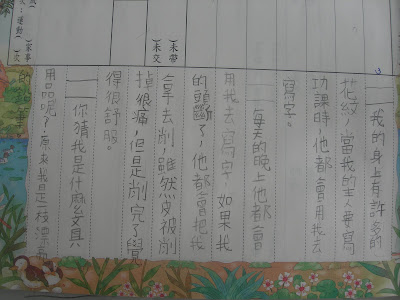 我的身上有許多的
花紋，當我的主人要寫
功課時，他都會用我去
寫字。
每天的晚上他都會
用我去寫字，如果我
的頭斷了，他都會把我
拿去削，雖然皮被削
掉很痛，但是削完了覺
得很舒服。
你猜我是什麼文具
用品呢？原來我是一枝漂亮
（未帶
（未交
（家事
（次
運動）